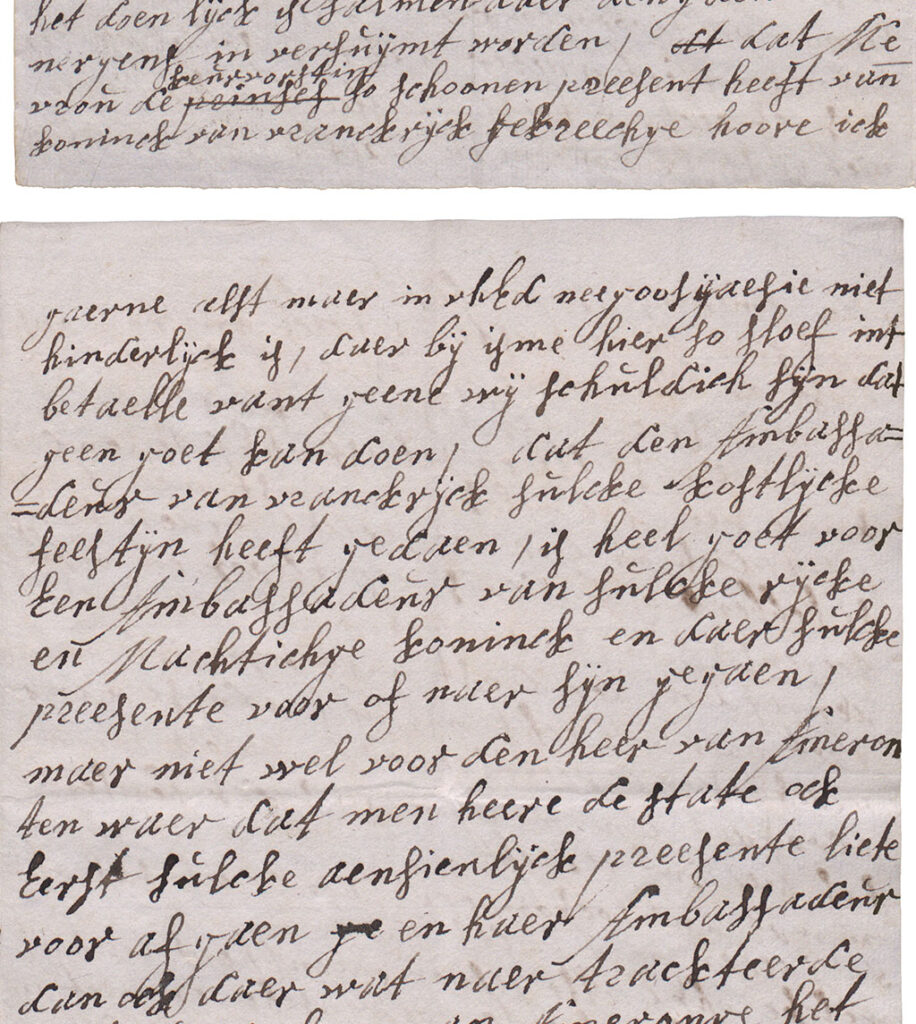 het doen lijck
nergens in versuijmt worden, dat Me
keurvorstin
vrou de prinses so schoonen preesent heeft van
koninck van vranckrijck gekreechge hoore ick
gaerne alst maer in uhEd neegoosijaesie niet
hinderlijck is, daer bij isme hier so sloef int
betaelle vant geene wij schuldich sijn dat
geen goet kan doen, dat den Ambassa=
=deur van vranckrijck sulcke kostlijcke
feestijn heeft gedaen, is heel goet voor
Een Ambassadeur van sulcke rijcke
en Machtichge koninck en daer sulcke
preesente voor of naer sijn gegaen,
maer niet wel voor den heer van Ameron
ten waer dat men heere de state ock
Eerst sulcke aensienlijck preesente liete
voor af gaen en haer Ambassadeur
dan ock daer wat naer trackteerde
het